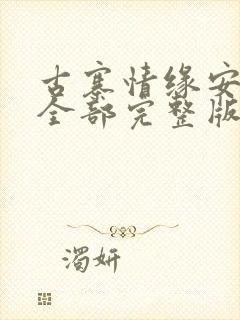 古寨情缘安
全部完整版
濁妍